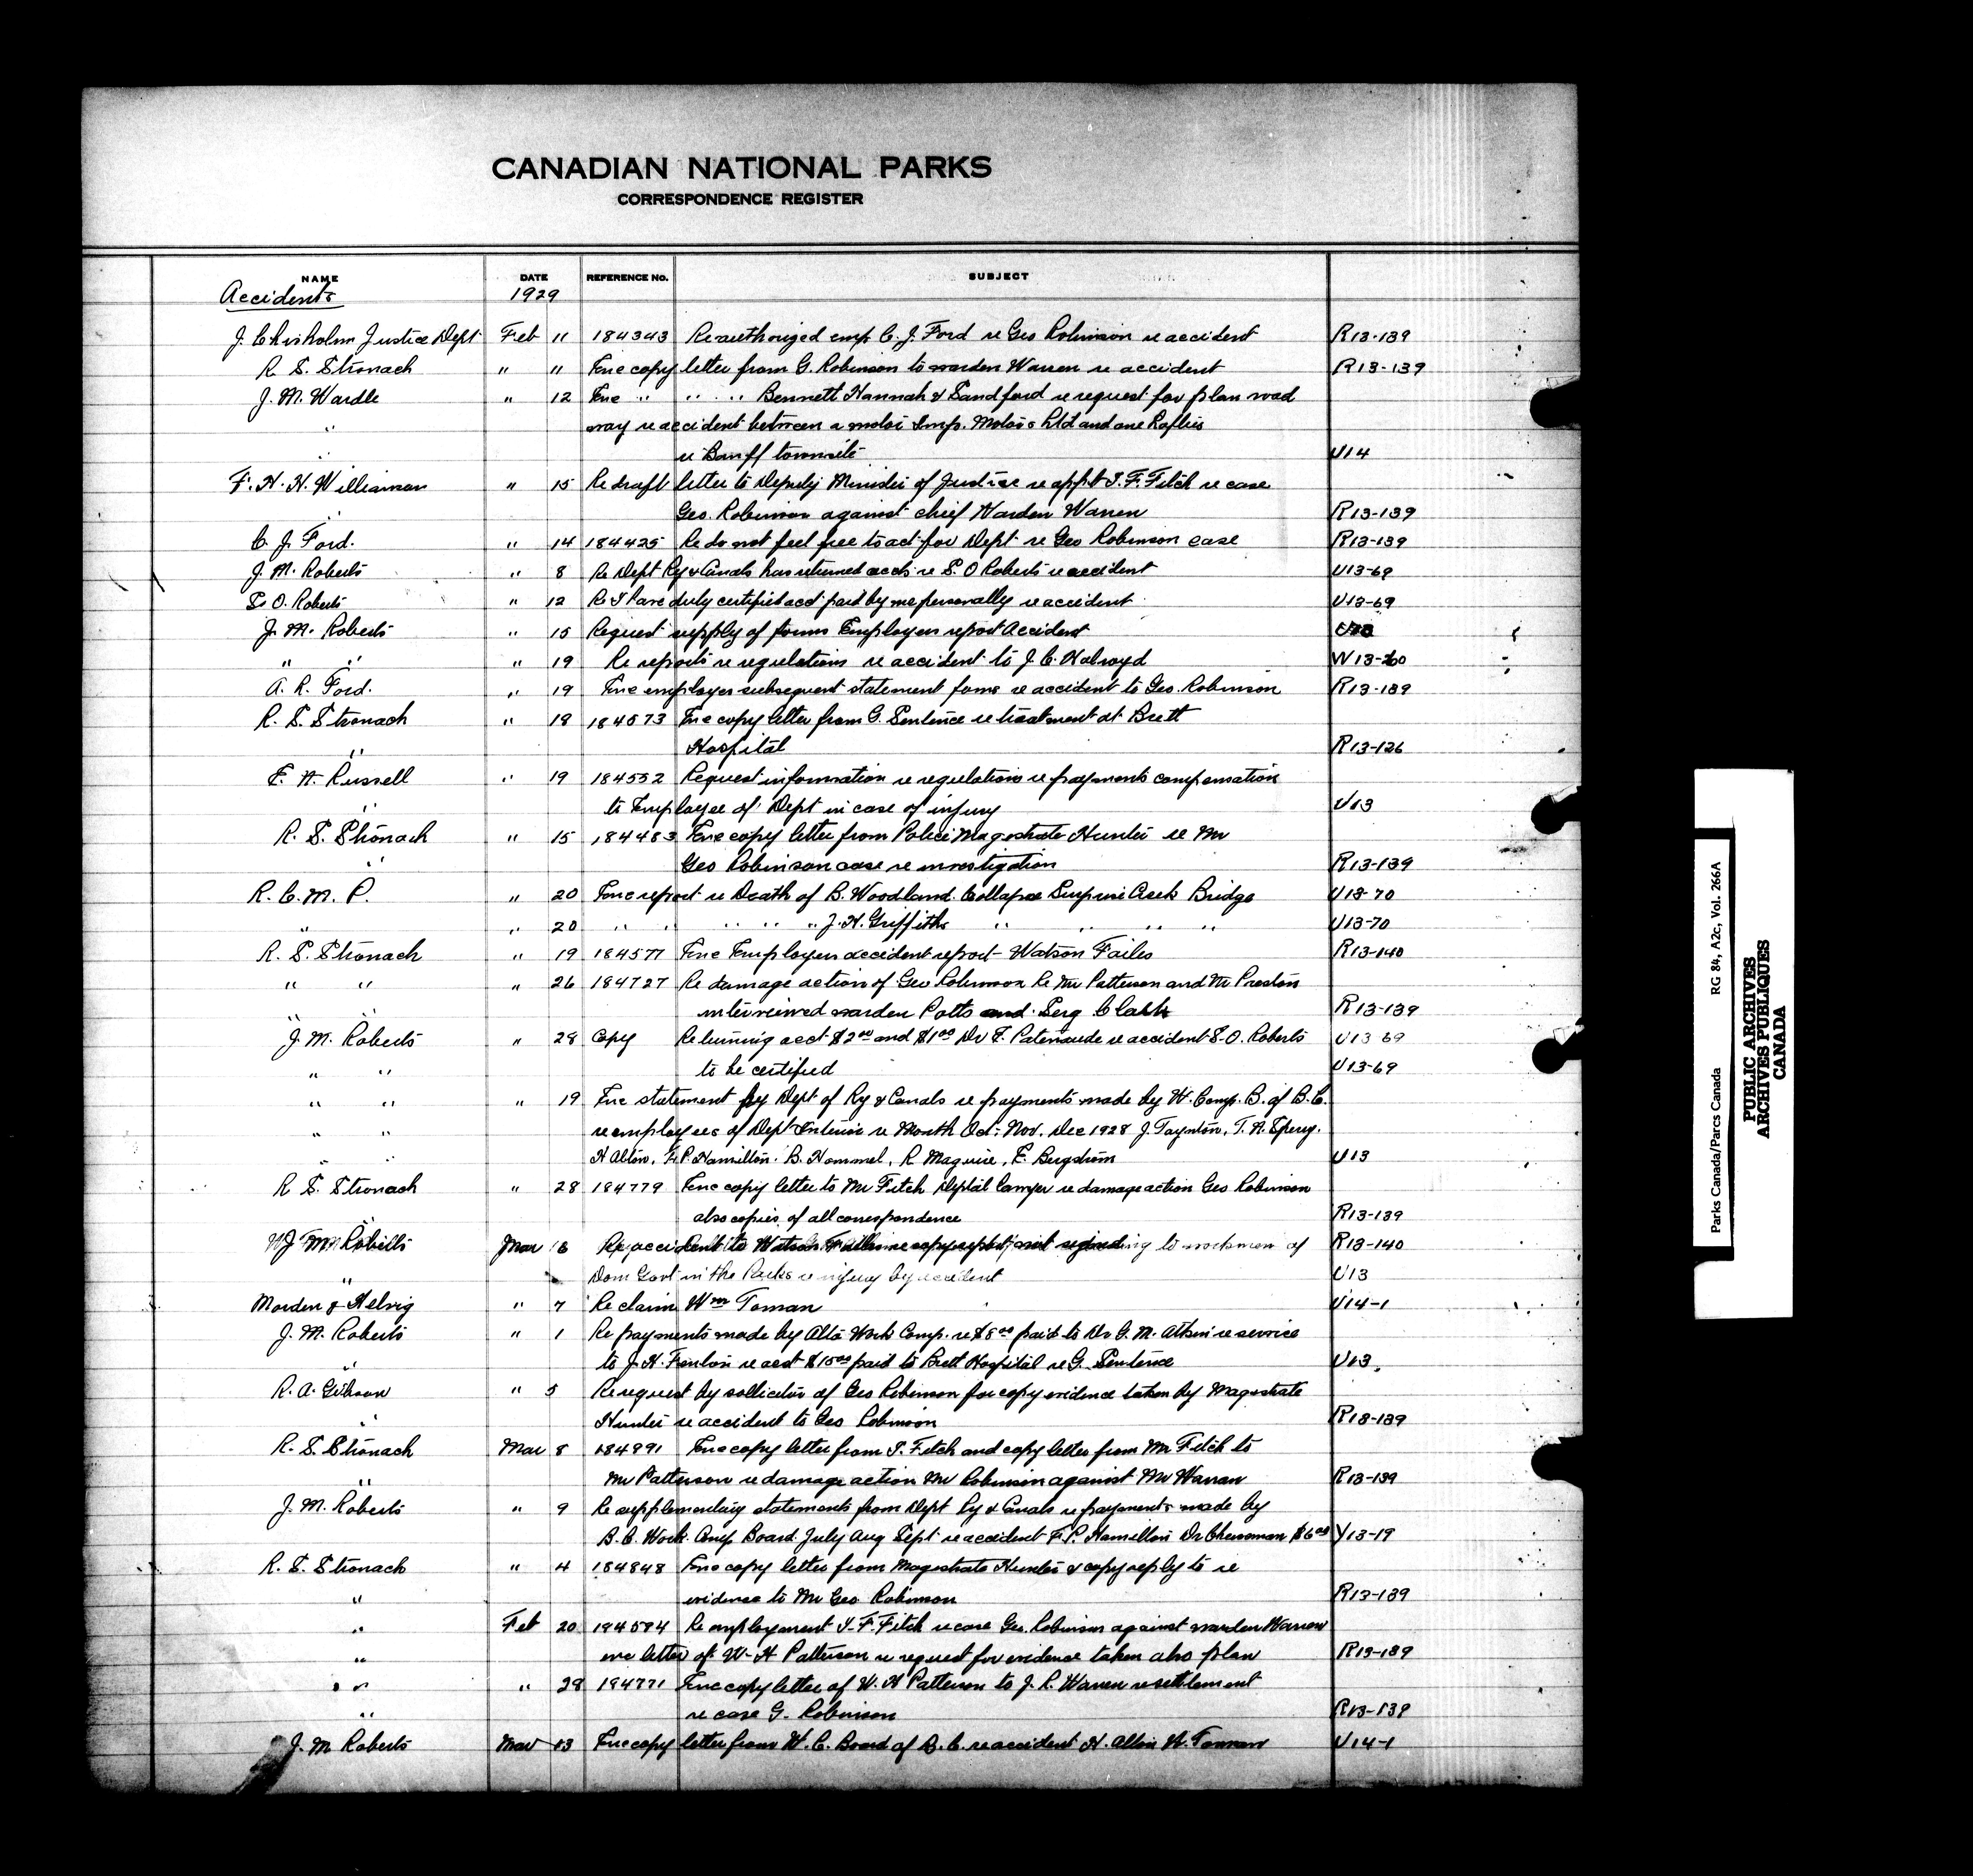 CANADIAN NATIONAL PARKS
CORRESPONDENCE REGISTER
NAME DATE REFERENCE No. SUBJECT
Accidents 1929
J. Chisholm Justice Dept Feb 11 184343 Re authorized emp C. J. Ford re Geo Robinson re accident R13-139
R. S. Stronach " 11 Enc copy letter from G. Robinson to warden Warren re accident R13-139
J. M. Wardle " 12 Enc " " " " Bennett Hannah & Sandford re request for plan road
" way re accident between a motor Imp. Motors Ltd and one
" re Banff townsite U14
F. H. H. Williamson " 15 Re draft letter to Deputy Minister of Justice re appt T. F. Fitch re case
" Geo. Robinson against chief Warden Warren R13-139
C. J. Ford. " 14 184425 Re do not feel free to act for Dept re Geo Robinson case R13-139
J. M. Roberts " 8 Re Dept Ry & Canals has returned accts re S. O Roberts re accident U13-69
S. O. Roberts " 12 Re I have duly certified acct paid by me personally re accident U13-69
J. M. Roberts " 15 Request supply of forms Employers report Accident
" " " 19 Re reports re regulations re accident to J. C. Holroyd W13-260
A. R. Ford. " 19 Enc employer subsequent statement forms re accident to Geo. Robinson R13-139
R. S. Stronach " 18 184573 Enc copy letter from G. Sentence re treatment at Brett
" Hospital R13-126
E. A. Russell " 19 184552 Request information re regulations re payments compensation
" to Employee of Dept in case of injury U13
R. S. Stronach " 15 184483 Enc copy letter from Police Magistrate Hunter re Mr
" Geo Robinson case re investigation R13-139
R. C. M. P. " 20 Enc report re Death of B. Woodland Collapse Surprise Creek Bridge U13-70
" " 20 " " " " " " J. H. Griffiths " " " " U13-70
R. S. Stronach " 19 184577 Enc Employers accident report - Watson Failes R13-140
" " " 26 184727 Re damage action of Geo Robinson Re Mr Patterson and Mr Preston
" " interviewed warden Potts and Serg Clark R13-139
J. M. Roberts " 28 Copy Returning acct $2.00 and $1.00 Dr F. Patenaude re accident S. O. Roberts U13 69
" " to be certified U13-69
" " " 19 Enc statement by Dept of Ry & Canals re payments made by W. Comp. B. of B.C.
" " re employees of Dept Interior re Month Oct: Nov. Dec 1928 J. Taynton, T. R. Sperry.
" " H Alton, F. P. Hamilton. B. Hommel, R Maguire, E. Bergstrom U13
R S. Stronach " 28 184779 Enc copy letter to Mr Fitch Deptal lawyer re damage action Geo Robinson
" also copies of all correspondence R13-139
J M Roberts Mar 6 Re accident to Watson to workmen of R13-140
" Dom Govt in the Parks re injury by accident U13
Morden & Helvig " 7 Re claim Wm Toman U14-1
J. M. Roberts " 1 Re payments made by Alta Work Comp. re $8.00 paid to Dr G. M. Atkin re service
" to J. H. Fenton re acct $15.00 paid to Brett Hospital re G. Sentence U13
R. A. Gibson " 5 Re request by sollicitor of Geo Robinson for copy evidence taken by Magistrate
" Hunter re accident to Geo Robinson R13-139
R. S. Stronach Mar 8 184991 Enc copy letter from T. Fitch and copy letter from Mr Fitch to
" Mr Patterson re damage action Mr Robinson against Mr Warren R13-139
J. M. Roberts " 9 Re supplementary statements from Dept Ry & Canals re payments made by
B. C. Work. Comp Board July Aug Sept re accident F. P. Hamilton Dr $6.00 Y13-19
R. S. Stronach " 4 184848 Enc copy letter from Magistrate Hunter & copy reply to re
" evidence to Mr Geo Robinson R13-139
" Feb 20 184594 Re employment T. F. Fitch re case Geo. Robinson against warden Warren
" enc letter of W. H Patterson re request for evidence taken also plan R13-139
" " " 28 184771 Enc copy letter of W. H Patterson to J. R. Warren re settlement
" re case G. Robinson R13-139
J. M Roberts Mar 13 Enc copy letter from W. C. Board of B. C. re accident H. Alton W. Toman U14-1
Parks Canada/Parcs Canada RG 84, A2c, Vol. 266A
PUBLIC ARCHIVES
ARCHIVES PUBLIQUES
CANADA